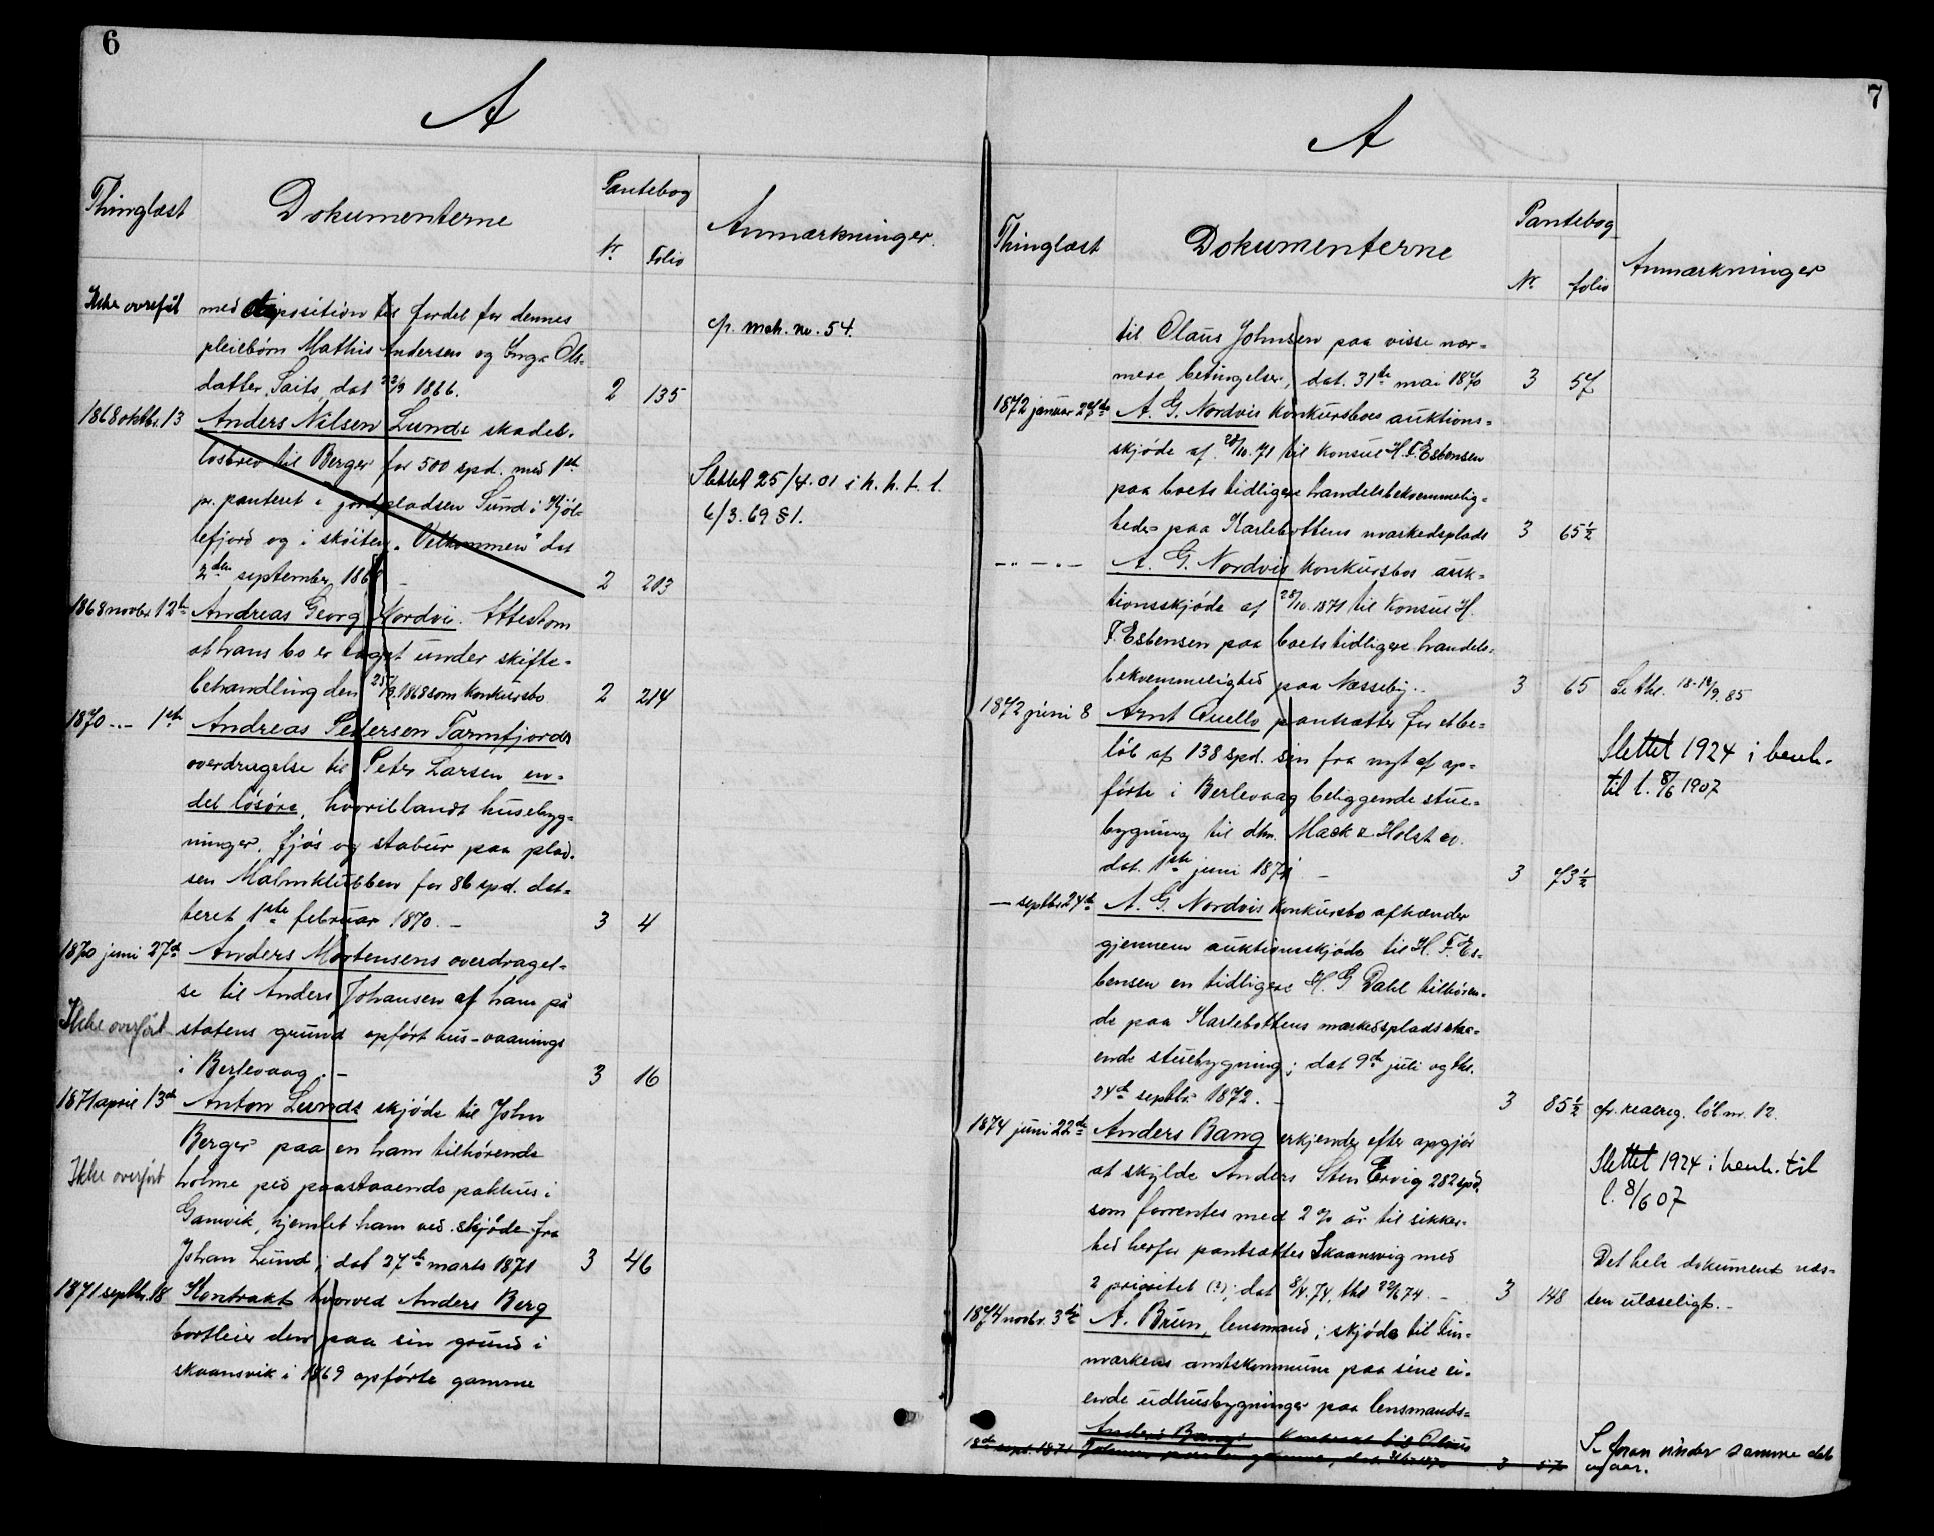 6
A
Thinglæst
Dokumenterne
Pantebog
Nr
Folio
Anmærkninger.
Ikke overført
med disposition til fordel for dennes
pleiebørn Mathis Andersen og Inga Ols-
datter Saits, dat 22/9 1866.
2
135
cfr. mch. nr. 54.
1868 oktbr. 13
Anders Nilsen Lunde skades-
løsbrev til Berger for 500 spd. med 1ste
pr. panteret i jordpladsen Sund i Kjøl-
lefjord og i skøiten "Velkommen" dat
2den september 186
2
203
Slettet 25/4.01 i h. h. t. l.
6/3.69 § 1.
1868 novbr 12te
Andreas Georg Nordvi. Attest om
at hans bo er taget under skifte-
behandling den 25/9.1868 som konkursbo
2
214
1870 -- 1ste
Andreas Pedersen Tarmfjords
overdragelse til Peter Larsen en-
del løsøre, hvoriblandt husebyg-
ninger, fjøs og stabur paa plad-
sen Malmklubben for 86 spd. dat-
teret 1ste februar 1870. -
3
4
1870 juni 27de
Anders Mortensens overdragel-
se til Anders Johansen af ham på
Ikke overført
statens grund opført hus-vaanings
i Berlevaag. -
3
16
1871 april 13de
Anton Lunds skjøde til John
Berger paa en ham tilhørende
Ikke overført
holme med paastaaende pakhus i
Gamvik, hjemlet ham ved skjøde fra
Johan Lund; dat 27de marts 1871
3
46
1871 septbr. 18
Kontrakt hvorved Anders Berg
bortleier den paa sin grund i
skaansvik i 1869 opførte gamme
7
A
Thinglæst
Dokumenterne
Pantebog
Nr
folio
Anmærkninger
til Olaus Johnsen paa visse nær-
mere betingelser, dat. 31te mai 1870
3
57
1872 januar 27de
A. G. Nordvis konkursboes auktions-
skjøde af 28/10.71 til konsul H. F. Esbensen
paa boets tidligere handelsbekvemmelig-
heder paa Karlebottens markedsplads
3
65½
-- " -- " --
A. G. Nordvis konkursbos auk-
tionsskjøde af 28/10.1871 til konsul H.
F. Esbensen paa boets tidligere handels-
bekvemmelighed paa Næsseby..
3
65
Se thl. 18-19/9.85
1872 juni 8
Arnt Quello pantsætter for et be-
løb af 138 spd. sin fra nyt af op-
førte i Berlevaag beliggende stue-
bygning til dhrr. Mack & Holst co.
dat. 1ste juni 1871 -
3
73½
Slettet 1924 i henh.
til l. 8/6 1907
— septbr 24de
A. G. Nordvis konkursbo afhænder
gjennem auktionsskjøde til H. F. Es-
bensen en tidligere H. G Dahl tilhøren-
de paa Karlebottens markedsplads staa-
ende stuebygning; dat 9de juli og thl.
24de septbr 1872. -
3
85½
cfr. realreg. løbnr. 12.
1874 juni 22de
Anders Bang erkjender efter opgjør
at skylde Anders Sten Ervig 282 spd.
som forrentes med 2 % år til sikker-
hed herfor pantsættes Skaansvig med
2 prioritet (?); dat 8/4.74, thl 22/6 74. -
3
148
Slettet 1924 i henh. til
l. 8/6 07
Det hele dokument næs-
ten ulæseligt. -
1874 novbr. 3die
A. Brun, lensmand; skjøde til Fin-
markens amtskommune paa sine ei-
ende udhusbygninger paa lensmands-
18de sept. 1871
Anders Bangs Kontrakt til Olaus
Johnsen paa en gamme, dat 31/5 1870
3
57
Se foran under samme dat
og aar.